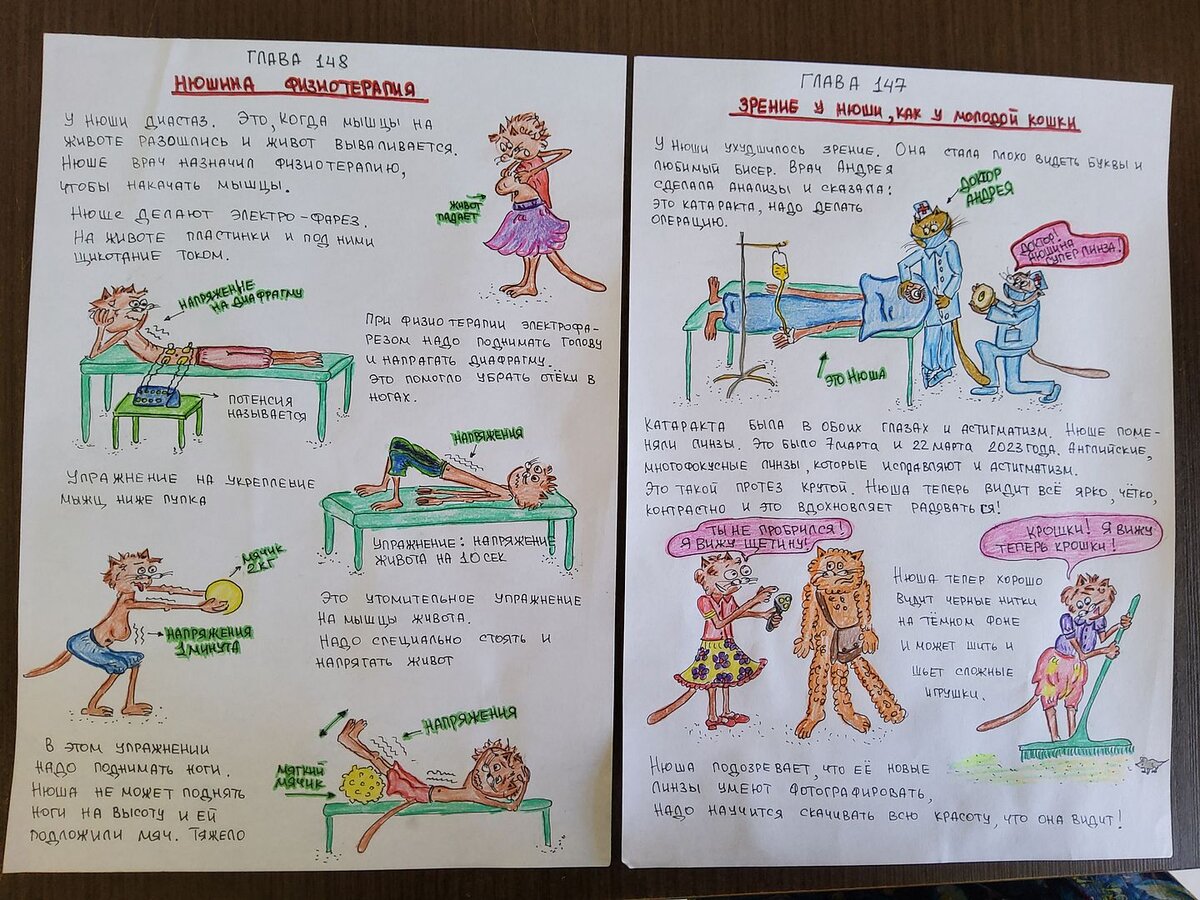 ГЛАВА 148
НЮШИНА ФИЗИОТЕРАПИЯ
У НЮШИ ДИАСТАЗ. ЭТО, КОГДА МЫШЦЫ НА
ЖИВОТЕ РАЗОШЛИСЬ И ЖИВОТ ВЫВАЛИВАЕТСЯ.
НЮШЕ ВРАЧ НАЗНАЧИЛ ФИЗИОТЕРАПИЮ,
ЧТОБЫ НАКАЧАТЬ МЫШЦЫ.
ЖИВОТ
ПАДАЕТ
НЮШЕ ДЕЛАЮТ ЭЛЕКТРО-ФАРЕЗ.
НА ЖИВОТЕ ПЛАСТИНКИ И ПОД НИМИ
ЩИКОТАНИЕ ТОКОМ.
НАПРЯЖЕНИЕ
НА ДИАФРАГМУ
ПОТЕНСИЯ
НАЗЫВАЕТСЯ
ПРИ ФИЗИОТЕРАПИИ ЭЛЕКТРОФА-
РЕЗОМ НАДО ПОДНИМАТЬ ГОЛОВУ
И НАПРАГАТЬ ДИАФРАГМУ.
ЭТО ПОМОГЛО УБРАТЬ ОТЁКИ В
НОГАХ.
УПРАЖНЕНИЕ НА УКРЕПЛЕНИЕ
МЫЖЦ НИЖЕ ПУПКА
НАПРЯЖЕНИЯ
УПРАЖНЕНИЕ: НАПРЯЖЕНИЕ
ЖИВОТА НА 10 СЕК
МЯЧИК
2 КГ
НАПРЯЖЕНИЯ
1 МИНУТА
ЭТО УТОМИТЕЛЬНОЕ УПРАЖНЕНИЕ
НА МЫШЦЫ ЖИВОТА.
НАДО СПЕЦИАЛЬНО СТОЯТЬ И
НАПРЯГАТЬ ЖИВОТ
В ЭТОМ УПРАЖНЕНИИ
НАДО ПОДНИМАТЬ НОГИ.
НЮША НЕ МОЖЕТ ПОДНЯТЬ
НОГИ НА ВЫСОТУ И ЕЙ
ПОДЛОЖИЛИ МЯЧ. ТЯЖЕЛО
НАПРЯЖЕНИЯ
МЯГКИЙ
МЯЧИК
ГЛАВА 147
ЗРЕНИЕ У НЮШИ, КАК У МОЛОДОЙ КОШКИ
У НЮШИ УХУДШИЛОСЬ ЗРЕНИЕ. ОНА СТАЛА ПЛОХО ВИДЕТЬ БУКВЫ И
ЛЮБИМЫЙ БИСЕР. ВРАЧ АНДРЕЯ
СДЕЛАЛА АНАЛИЗЫ И СКАЗАЛА:
ЭТО КАТАРАКТА, НАДО ДЕЛАТЬ
ОПЕРАЦИЮ.
ДОКТОР
АНДРЕЯ
ДОКТОР!
НЮШИНА
СУПЕР ЛИНЗА!
ЭТО НЮША
КАТАРАКТА БЫЛА В ОБОИХ ГЛАЗАХ И АСТИГМАТИЗМ. НЮШЕ ПОМЕ-
НЯЛИ ЛИНЗЫ. ЭТО БЫЛО 7 МАРТА И 22 МАРТА 2023 ГОДА. АНГЛИЙСКИЕ,
МНОГОФОКУСНЫЕ ЛИНЗЫ, КОТОРЫЕ ИСПРАВЛЯЮТ И АСТИГМАТИЗМ.
ЭТО ТАКОЙ ПРОТЕЗ КРУТОЙ. НЮША ТЕПЕРЬ ВИДИТ ВСЁ ЯРКО, ЧЁТКО,
КОНТРАСТНО И ЭТО ВДОХНОВЛЯЕТ РАДОВАТЬСЯ!
ТЫ НЕ ПРОБРИЛСЯ!
Я ВИЖУ ЩЕТИНУ!
КРОШКИ! Я ВИЖУ
ТЕПЕРЬ КРОШКИ!
НЮША ТЕПЕР ХОРОШО
ВИДИТ ЧЕРНЫЕ НИТКИ
НА ТЁМНОМ ФОНЕ
И МОЖЕТ ШИТЬ И
ШЬЕТ СЛОЖНЫЕ
ИГРУШКИ.
НЮША ПОДОЗРЕВАЕТ, ЧТО ЕЁ НОВЫЕ
ЛИНЗЫ УМЕЮТ ФОТОГРАФИРОВАТЬ,
НАДО НАУЧИТСЯ СКАЧИВАТЬ ВСЮ КРАСОТУ, ЧТО ОНА ВИДИТ!